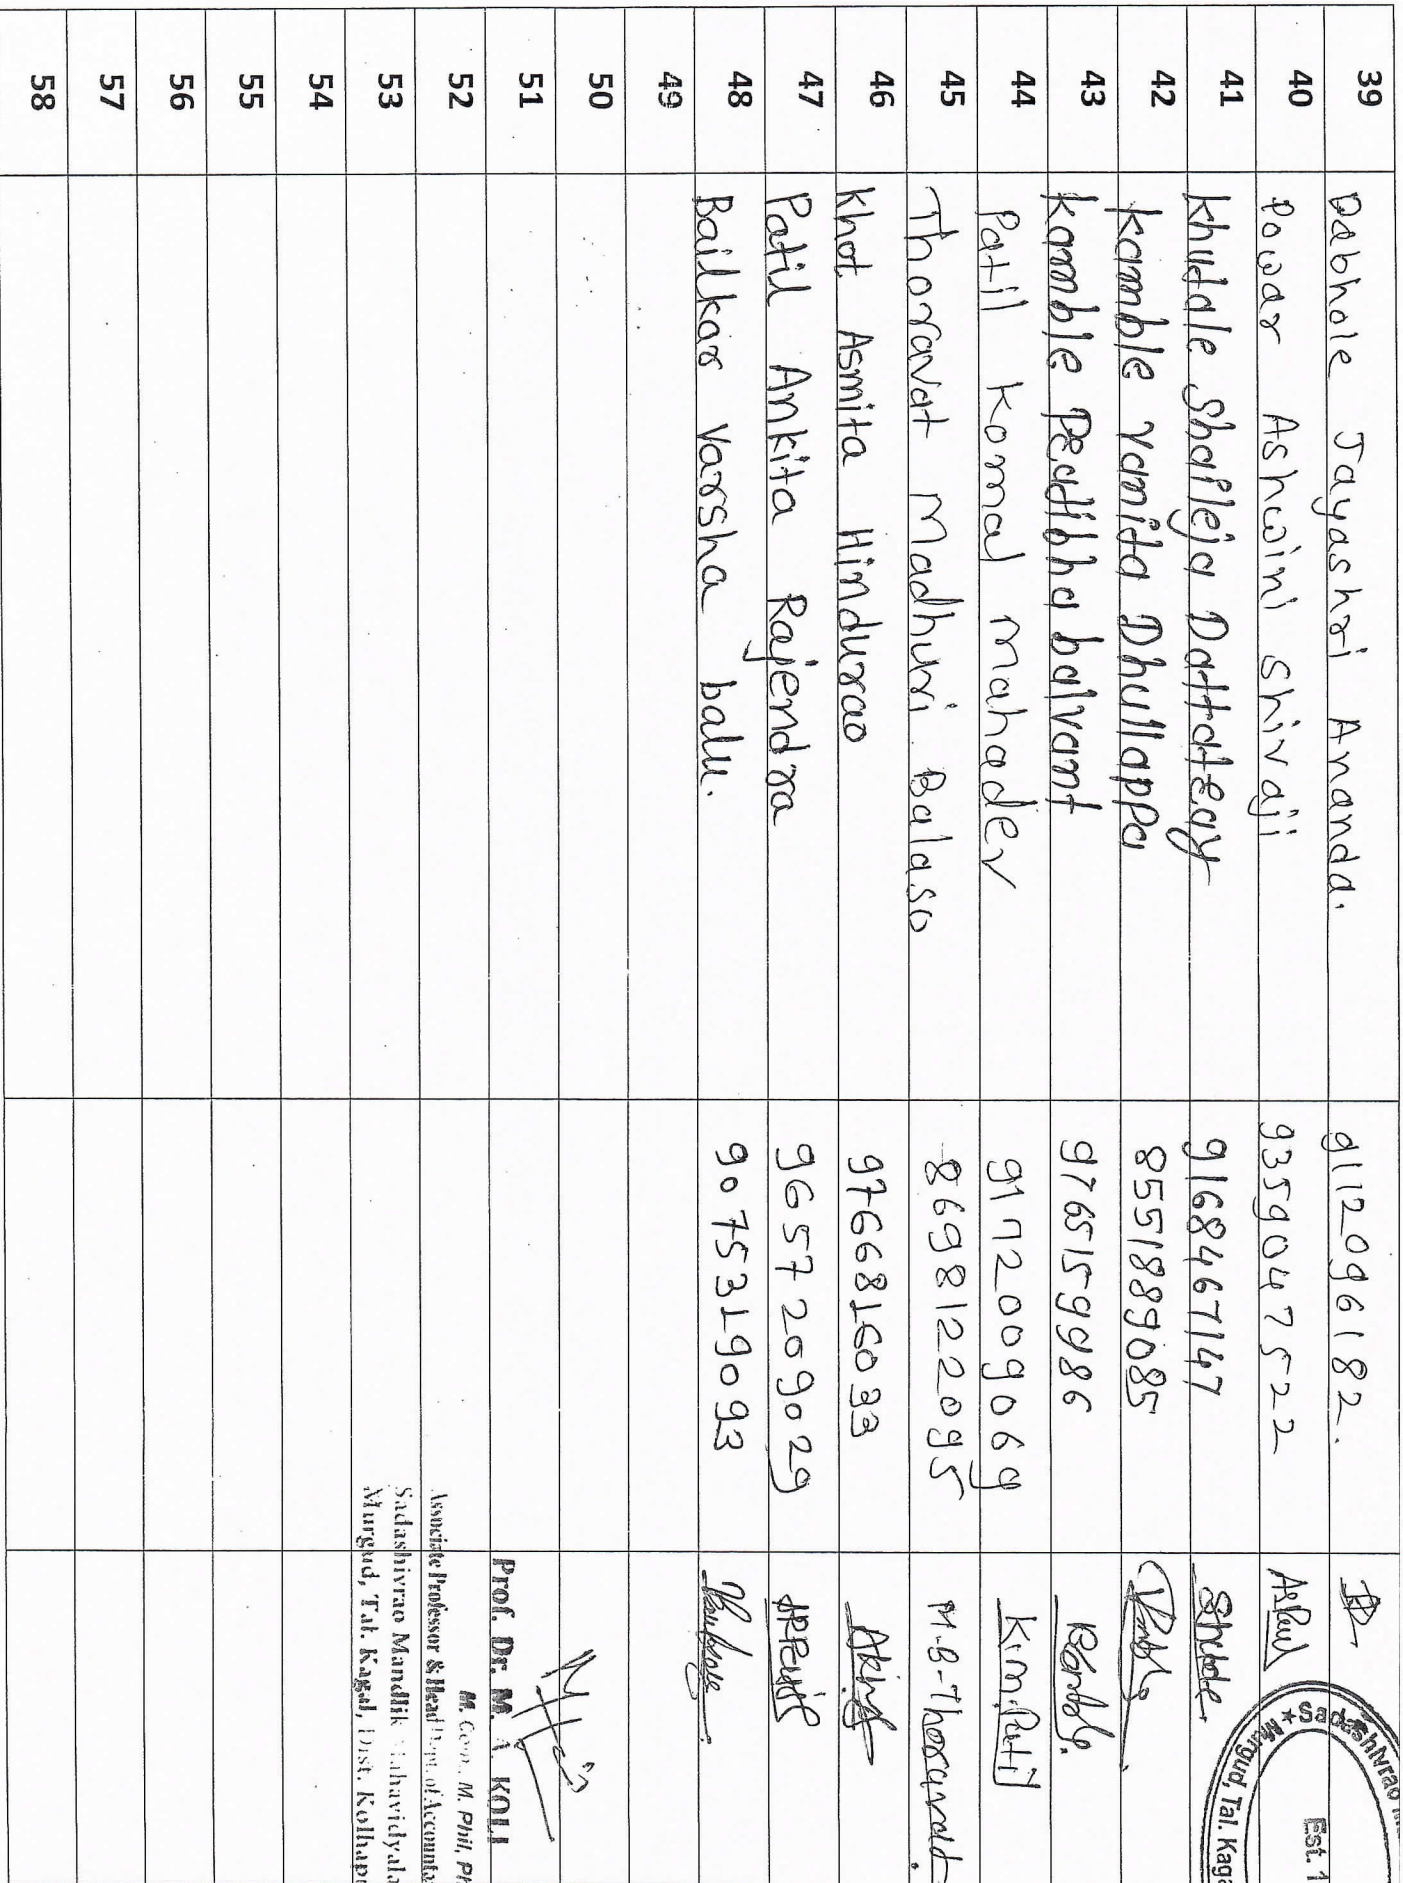 39 Dabhole Jayashri Ananda. 9112096182.
40 Powar Ashwini Shivaji 9359047522
41 Khutale Shaileja Dattatray 9168467147
42 Kamble Vanita Dhullappa 8551889085
43 Kamble Pradibha balvant 9765159986
44 Patil Komal Mahadev 9172009069 K.m.Patil
45 Thoravat Madhuri Balaso 8698122095 M.B-Thoravat.
46 Khot Asmita Hindurao 9766816033
47 Patil Ankita Rajendra 9657209029
48 Bailkar Varsha balu. 9075319093
49
50
51 Prof. Dr. M. A. KOLI
M. Com., M. Phil, Ph
52 Associate Professor & Head Dept. of Accounta
Sadashivrao Mandlik Mahavidyala
53 Murgud, Tal. Kagal, Dist. Kolhap
54
55
56
57
58
★ Sadashivrao M
Murgud, Tal. Kaga
Est. 1